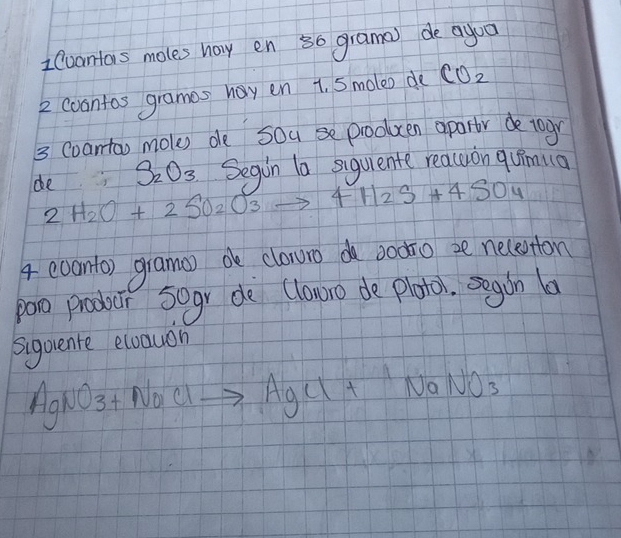 1 Cuantas moles hay en 36 gramos de agua
2 Cuantos gramos hay en 1.5 moles de CO2
3 Coantas moles de SO4 se producen apartir de 10gr
de S2O3 Según la siguiente reacción química
2 H2O + 2 SO2O3 → 4 H2S + 4 SO4
4 cuantos gramos de cloruro de sodio se necesitan
para producir 50gr de Cloruro de plata. según la
siguiente ecuación
AgNO3 + NaCl → AgCl + NaNO3